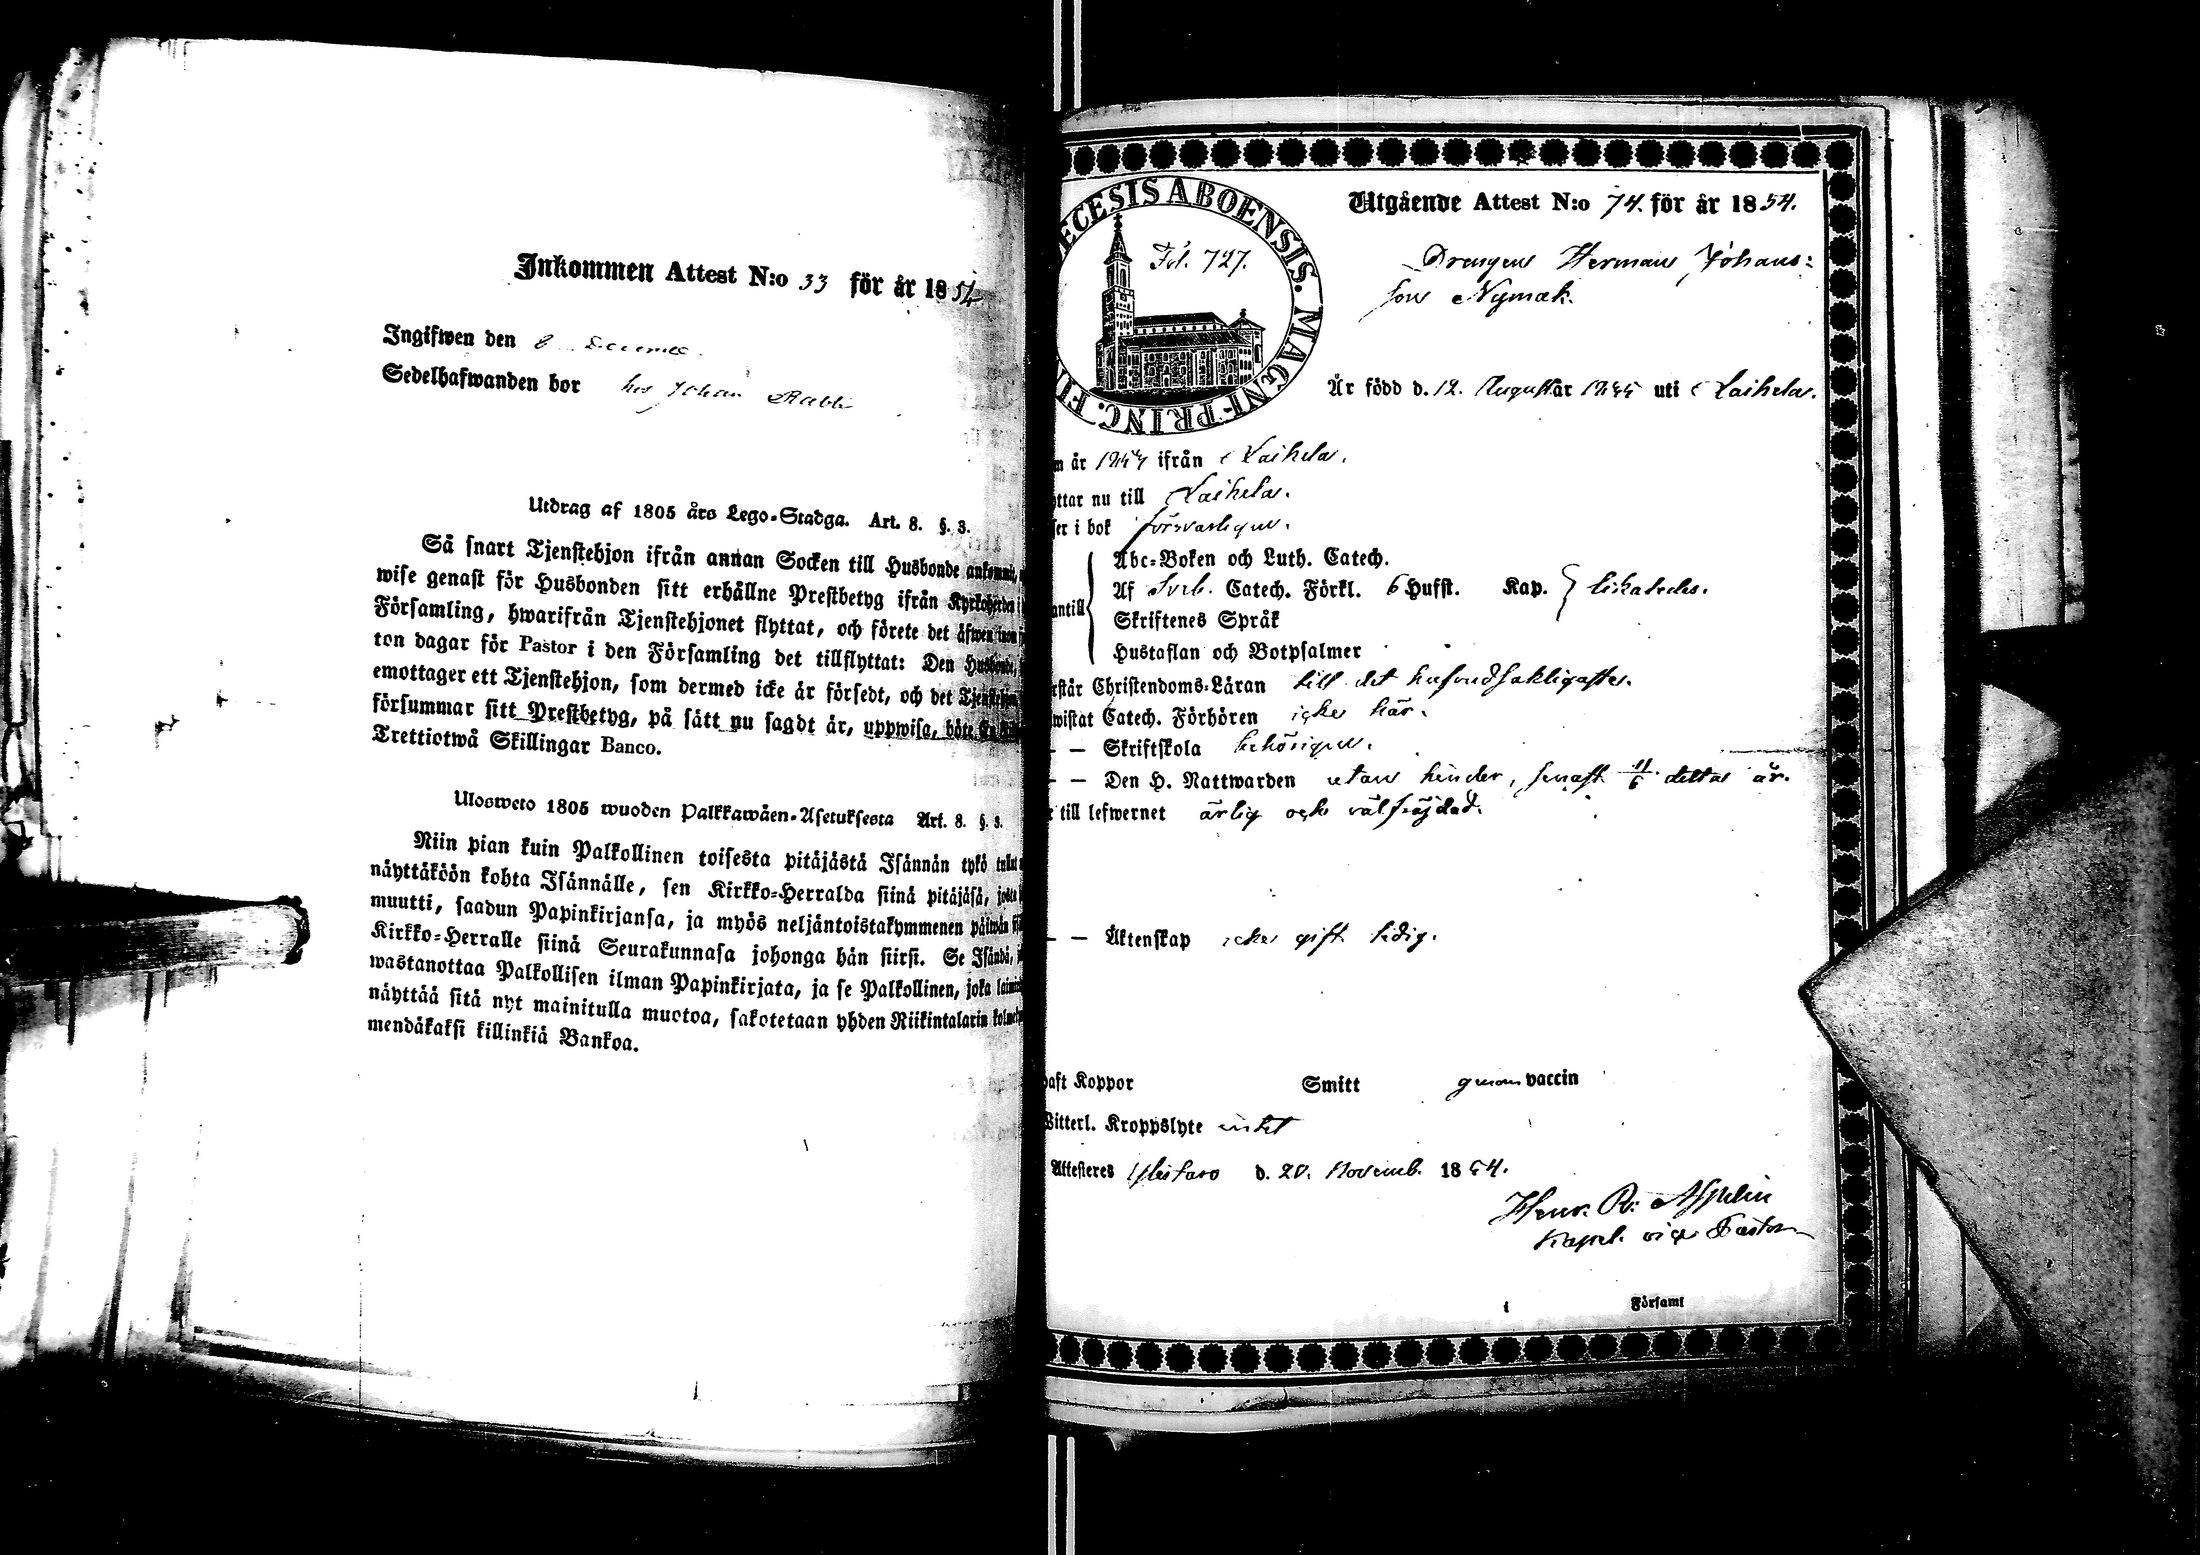 Inkommen Attest N:o 33 för år 1854
Ingifwen den 8 Decemb.
Sedelhafwanden bor hos Johan Rabbi
Utdrag af 1805 års Lego-Stadga. Art. 8. §. 3.
Så snart Tjenstehjon ifrån annan Socken till Husbonde ankommit,
wise genast för Husbonden sitt erhållne Prestbetyg ifrån Kyrkoherden i
Församling, hwarifrån Tjenstehjonet flyttat, och förete det äfwen inom
ton dagar för Pastor i den Församling det tillflyttat: Den Husbonde,
emottager ett Tjenstehjon, som dermed icke är försedt, och det Tjenstehjon
försummar sitt Prestbetyg, på sätt nu sagdt är, uppwisa, böte En
Trettiotwå Skillingar Banco.
Ulosweto 1805 wuoden Palkkawäen-Asetuksesta Art. 8. §. 3.
Niin pian kuin Palkollinen toisesta pitäjästä Isännän tykö tullut
näyttäköön kohta Isännälle, sen Kirkko-Herralda siinä pitäjäsä, josta
muutti, saadun Papinkirjansa, ja myös neljäntoistakymmenen päiwän
Kirkko-Herralle siinä Seurakunnasa johonga hän siirsi. Se Isändä,
wastanottaa Palkollisen ilman Papinkirjata, ja se Palkollinen, joka
näyttää sitä nyt mainitulla muotoa, sakotetaan yhden Riikintalarin
mendäkaksi killinkiä Bankoa.
ECESIS ABOENSIS. MAGNI PRINC. FI
Fol. 727.
Utgående Attest N:o 74. för år 1854.
Drengen Herman Johans=
son Nymak.
Är född d. 12. August år uti Laihela.
m år ifrån Laihela.
ttar nu till Laihela.
ser i bok försvarligen.
Abc-Boken och Luth. Catech.
antill Af Sveb. Catech. Förkl. 6 Hufst. Kap. likaledes.
Skriftenes Språk
Hustaflan och Botpsalmer
rstår Christendoms-Läran till det hufvudsakligaste.
wistat Catech. Förhören icke här.
— — Skriftskola behörigen.
— — Den H. Nattwarden utan hinder, senast 11/6 detta år.
r till lefwernet ärlig och välfrejdad.
— — Äktenskap icke gift ledig.
haft Koppor Smitt genom vaccin
Witterl. Kroppslyte intet
Attesteres Ylistaro d. 20. Novemb. 1854.
Henr. R: Asplin
Kapel. vice Pastor
i Församl